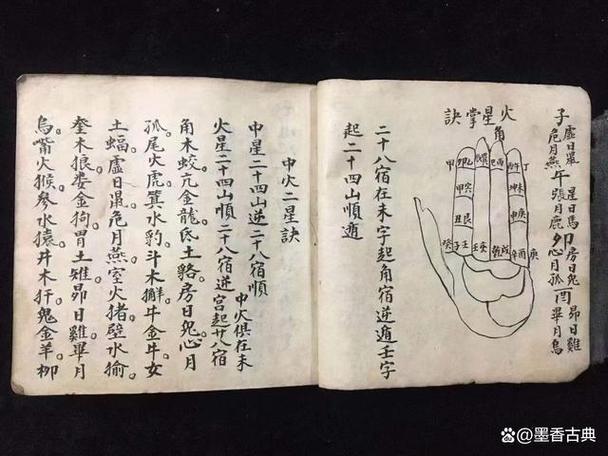 子 虛日鼠 危月燕
午 星日馬 張月鹿
卯 房日兔 心月狐
酉 昴日雞 畢月烏
火星掌訣
角
丁
甲
庚
二十八宿在未字起角宿逆遁壬字
起二十四山順遁
中火二星訣
中星二十四山逆二十八宿順
中火俱在未
火星二十四山順二十八宿逆宮起廿八宿
角木蛟亢金龍氐土貉房日兔心月
狐。尾火虎箕水豹。斗木獬牛金牛女
土蝠。虛日鼠危月燕。室火猪。壁水㺄。
奎木狼。婁金狗。胃土雉。昴日雞。畢月
烏。嘴火猴。參水猿。井木犴。鬼金羊。柳
@墨香古典